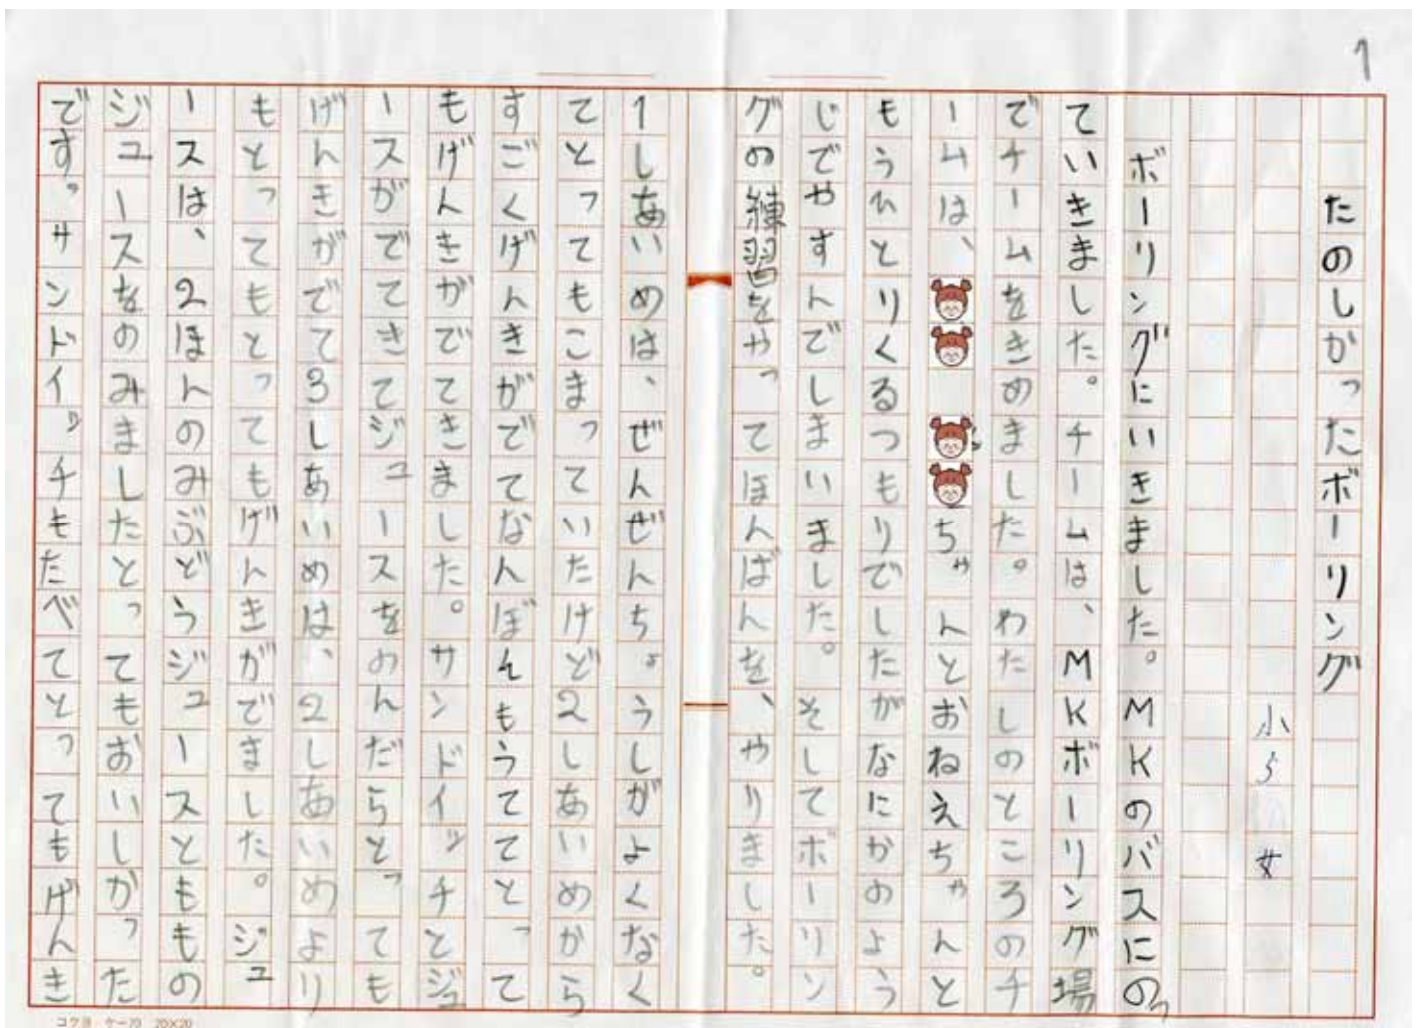 1
たのしかったボーリング
小5 女
ボーリングにいきました。MKのバスにのっ
ていきました。チームは、MKボーリング場
でチームをきめました。わたしのところのチ
ームは、ちゃんとおねえちゃんと
もうひとりくるつもりでしたがなにかのよう
じでやすんでしまいました。そしてボーリン
グの練習をやってほんばんを、やりました。
1しあいめは、ぜんぜんちょうしがよくなく
てとってもこまっていたけど2しあいめから
すごくげんきがでてなんぼんもうててとって
もげんきがでてきました。サンドイッチとジュ
ースがでてきてジュースをのんだらとっても
げんきがでて3しあいめは、2しあいめより
もとってもとってもげんきがでました。ジュ
ースは、2ほんのみぶどうジュースとももの
ジュースをのみましたとってもおいしかった
です。サンドイッチもたべてとってもげんき
コクヨ ケー70 20×20